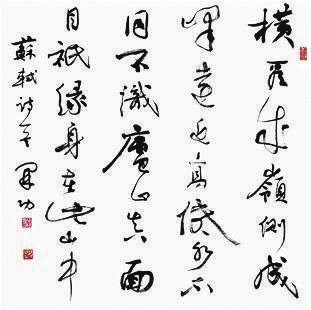 橫看成嶺側成
峰遠近高低各不
同不識廬山真面
目祇緣身在此山中
蘇軾詩功